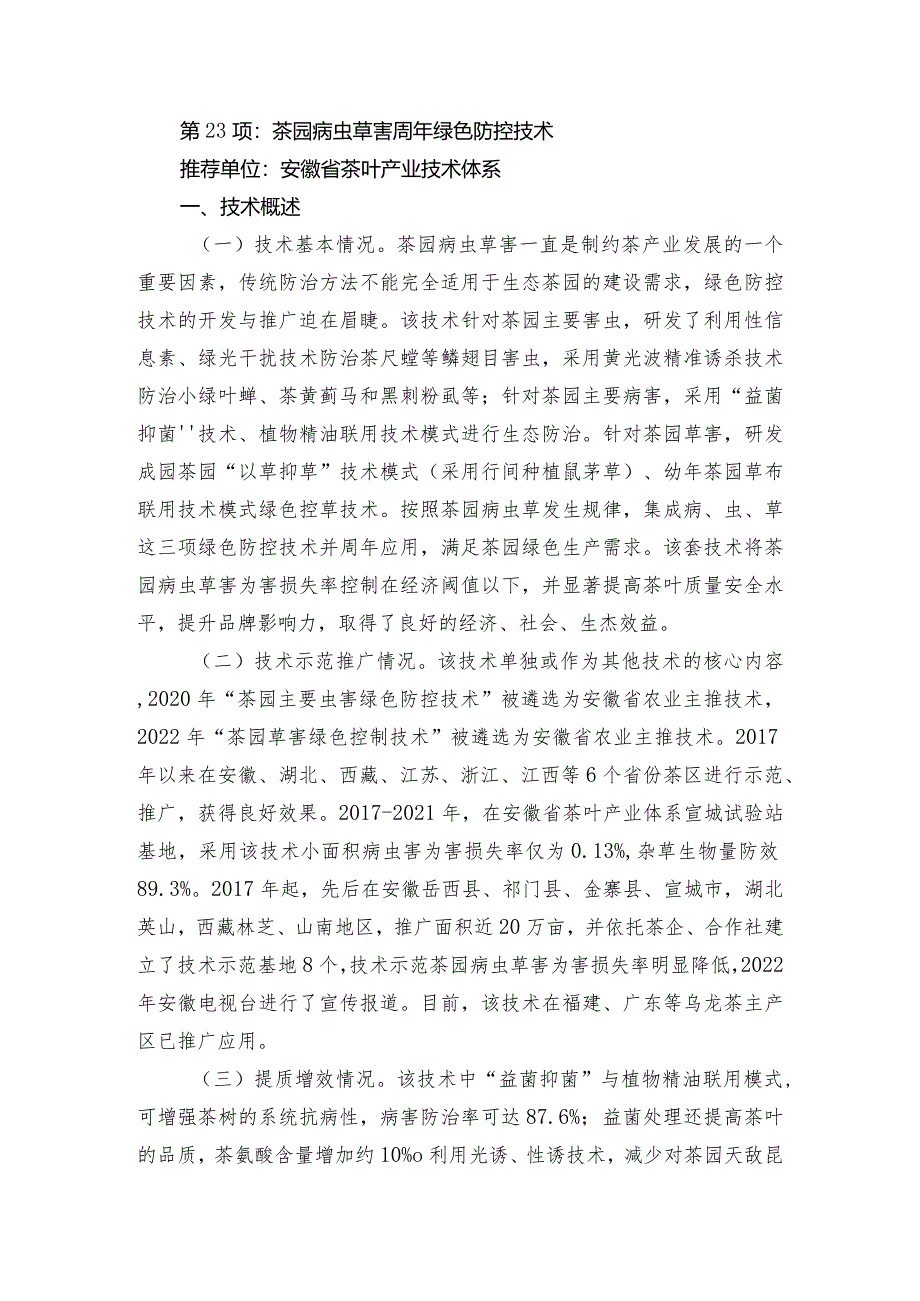 第 23 项：茶园病虫草害周年绿色防控技术
推荐单位：安徽省茶叶产业技术体系
一、技术概述
（一）技术基本情况。茶园病虫草害一直是制约茶产业发展的一个
重要因素，传统防治方法不能完全适用于生态茶园的建设需求，绿色防控
技术的开发与推广迫在眉睫。该技术针对茶园主要害虫，研发了利用性信
息素、绿光干扰技术防治茶尺蠖等鳞翅目害虫，采用黄光波精准诱杀技术
防治小绿叶蝉、茶黄蓟马和黑刺粉虱等；针对茶园主要病害，采用“益菌
抑菌''技术、植物精油联用技术模式进行生态防治。针对茶园草害，研发
成园茶园“以草抑草”技术模式（采用行间种植鼠茅草）、幼年茶园草布
联用技术模式绿色控草技术。按照茶园病虫草发生规律，集成病、虫、草
这三项绿色防控技术并周年应用，满足茶园绿色生产需求。该套技术将茶
园病虫草害为害损失率控制在经济阈值以下，并显著提高茶叶质量安全水
平，提升品牌影响力，取得了良好的经济、社会、生杰效益。
（二）技术示范推广情况。该技术单独或作为其他技术的核心内容
,2020 年“茶园主要虫害绿色防控技术”被遴选为安徽省农业主推技术，
2022 年“茶园草害绿色控制技术”被遴选为安徽省农业主推技术。2017
年以来在安徽、湖北、西藏、江苏、浙江、江西等 6 个省份茶区进行示范、
推广，获得良好效果。2017-2021 年，在安徽省茶叶产业体系宣城试验站
基地，采用该技术小面积病虫害为害损失率仅为 0.13%,杂草生物量防效
89.3%。2017 年起，先后在安徽岳西县、祁门县、金寨县、宣城市，湖北
英山，西藏林芝、山南地区，推广面积近 20 万亩，并依托茶企、合作社建
立了技术示范基地 8 个,技术示范茶园病虫草害为害损失率明显降低,2022
年安徽电视台进行了宣传报道。目前，该技术在福建、广东等乌龙茶主产
区已推广应用。
（三）提质增效情况。该技术中“益菌抑菌”与植物精油联用模式，
可增强茶树的系统抗病性，病害防治率可达 87.6%；益菌处理还提高茶叶
的品质，茶氨酸含量增加约 10%o 利用光诱、性诱技术，减少对茶园天敌昆